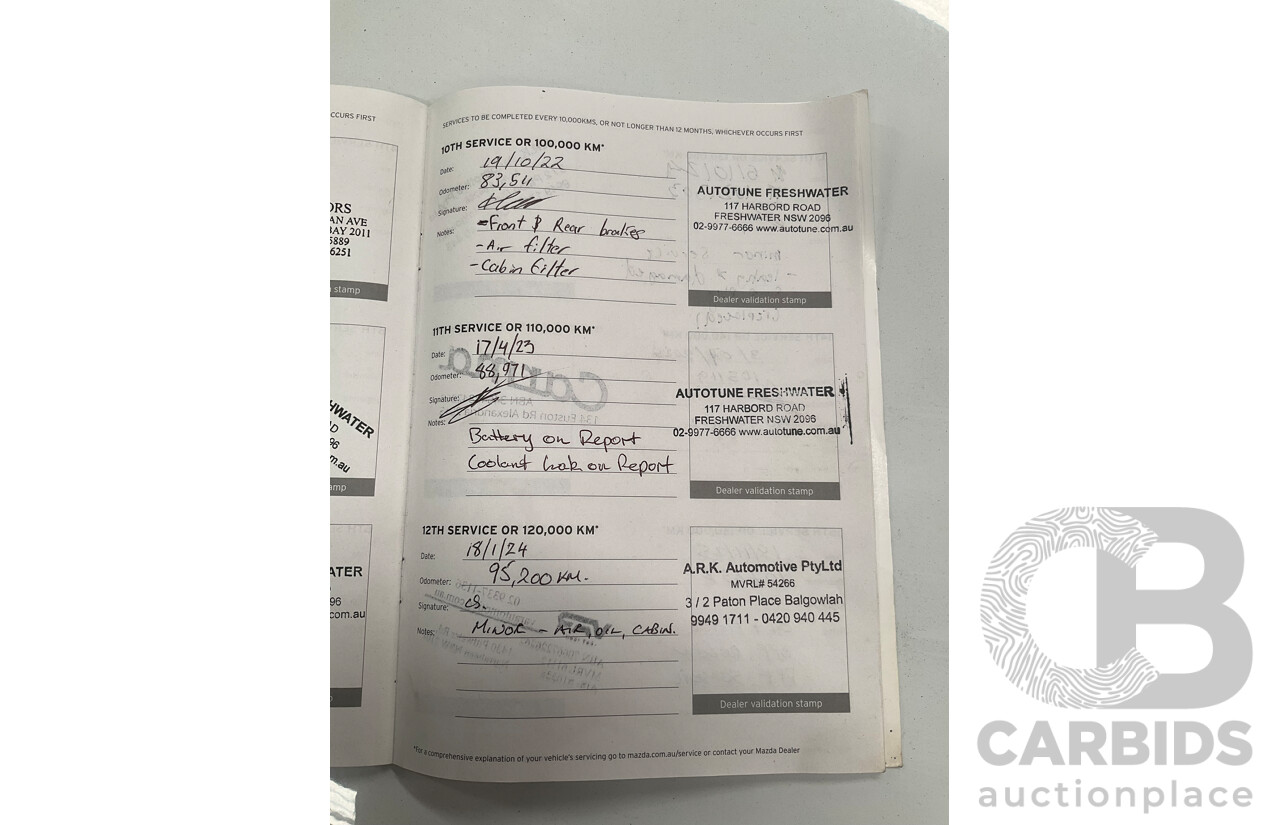 CCURS FIRST
ORS
AN AVE
BAY 2011
5889
6251
stamp
HWATER
D
96
m.au
mp
ATER
96
com.au
SERVICES TO BE COMPLETED EVERY 10,000KMS, OR NOT LONGER THAN 12 MONTHS, WHICHEVER OCCURS FIRST
10TH SERVICE OR 100,000 KM*
Date: 19/10/22
Odometer: 83,511
Signature:
Notes: -Front & Rear brakes
-Air filter
-Cabin filter
AUTOTUNE FRESHWATER
117 HARBORD ROAD
FRESHWATER NSW 2096
02-9977-6666 www.autotune.com.au
Dealer validation stamp
11TH SERVICE OR 110,000 KM*
Date: 17/4/23
Odometer: 88,971
Signature:
Notes:
Battery on Report
Coolant leak on Report
AUTOTUNE FRESHWATER
117 HARBORD ROAD
FRESHWATER NSW 2096
02-9977-6666 www.autotune.com.au
Dealer validation stamp
12TH SERVICE OR 120,000 KM*
Date: 18/1/24
Odometer: 95,200 KM.
Signature:
Notes: MINOR - AIR, OIL, CABIN.
A.R.K. Automotive PtyLtd
MVRL# 54266
3 / 2 Paton Place Balgowlah
9949 1711 - 0420 940 445
Dealer validation stamp
*For a comprehensive explanation of your vehicle's servicing go to mazda.com.au/service or contact your Mazda Dealer
CB
CARBIDS
auctionplace